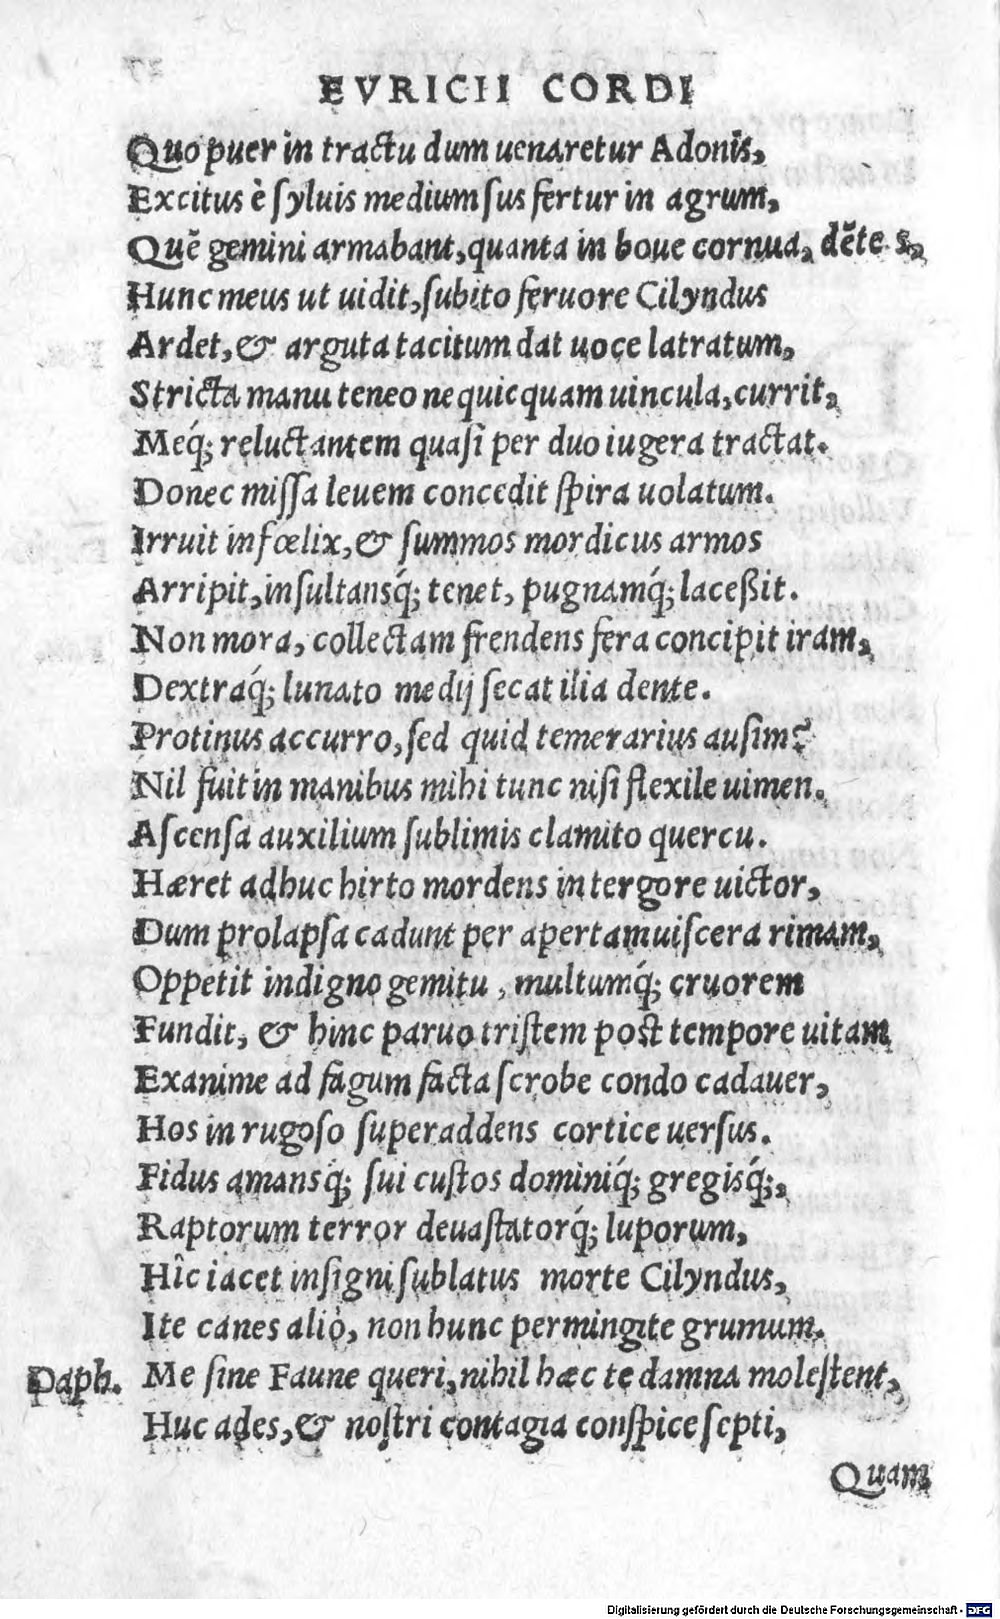 EVRICII CORDI
Quo puer in tractu dum uenaretur Adonis,
Excitus è ſyluis medium ſus fertur in agrum,
Quē gemini armabant, quanta in boue cornua, dētes,
Hunc meus ut uidit, ſubito feruore Cilyndus
Ardet, & arguta tacitum dat uoce latratum,
Stricta manu teneo nequicquam uincula, currit,
Meq́; reluctantem quaſi per duo iugera tractat.
Donec miſſa leuem concedit ſpira uolatum.
Irruit infœlix, & ſummos mordicus armos
Arripit, inſultansq́; tenet, pugnamq́; laceßit.
Non mora, collectam frendens fera concipit iram,
Dextraq́; lunato medij ſecat ilia dente.
Protinus accurro, ſed quid temerarius auſim?
Nil fuit in manibus mihi tunc niſi flexile uimen.
Aſcenſa auxilium ſublimis clamito quercu.
Hæret adhuc hirto mordens in tergore uictor,
Dum prolapſa cadunt per apertam uiſcera rimam,
Oppetit indigno gemitu, multumq́; cruorem
Fundit, & hinc paruo triſtem poſt tempore uitam
Exanime ad fagum facta ſcrobe condo cadauer,
Hos in rugoſo ſuperaddens cortice uerſus.
Fidus amansq́; ſui cuſtos dominiq́; gregisq́;,
Raptorum terror deuaſtatorq́; luporum,
Hîc iacet inſigni ſublatus morte Cilyndus,
Ite canes aliò, non hunc permingite grumum.
Daph. Me ſine Faune queri, nihil hæc te damna moleſtent,
Huc ades, & noſtri contagia conſpice ſepti,
Quam
Digitalisierung gefördert durch die Deutsche Forschungsgemeinschaft - DFG